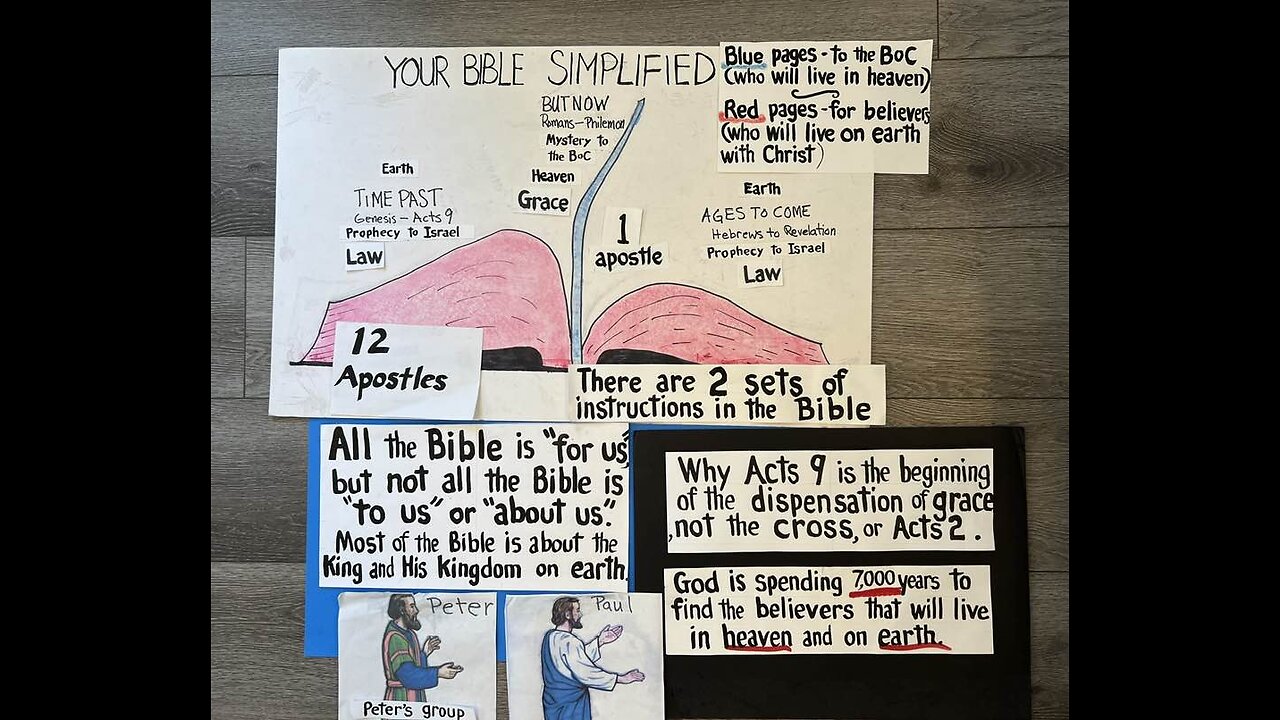 YOUR BIBLE SIMPLIFIED
Blue pages - to the BoC
(who will live in heaven)
Red pages - for believers
(who will live on earth
with Christ)
BUT NOW
Romans - Philemon
Mystery to
the BoC
Heaven
Grace
Earth
TIME PAST
Genesis - Acts 9
Prophecy to Israel
Law
1
apostle
Earth
AGES TO COME
Hebrews to Revelation
Prophecy to Israel
Law
12
Apostles
There are 2 sets of
instructions in the Bible
All the Bible is "for us"
but not all the Bible is
"to us" or "about us."
Most of the Bible is about the
King and His Kingdom on earth.
Why Acts 9 is the beginning
of the dispensation of grace
, not the cross, or Acts 2.
God is spending 7,000 years to
find the believers that will live
in heaven and on earth.
Peter
Peter's group
Paul